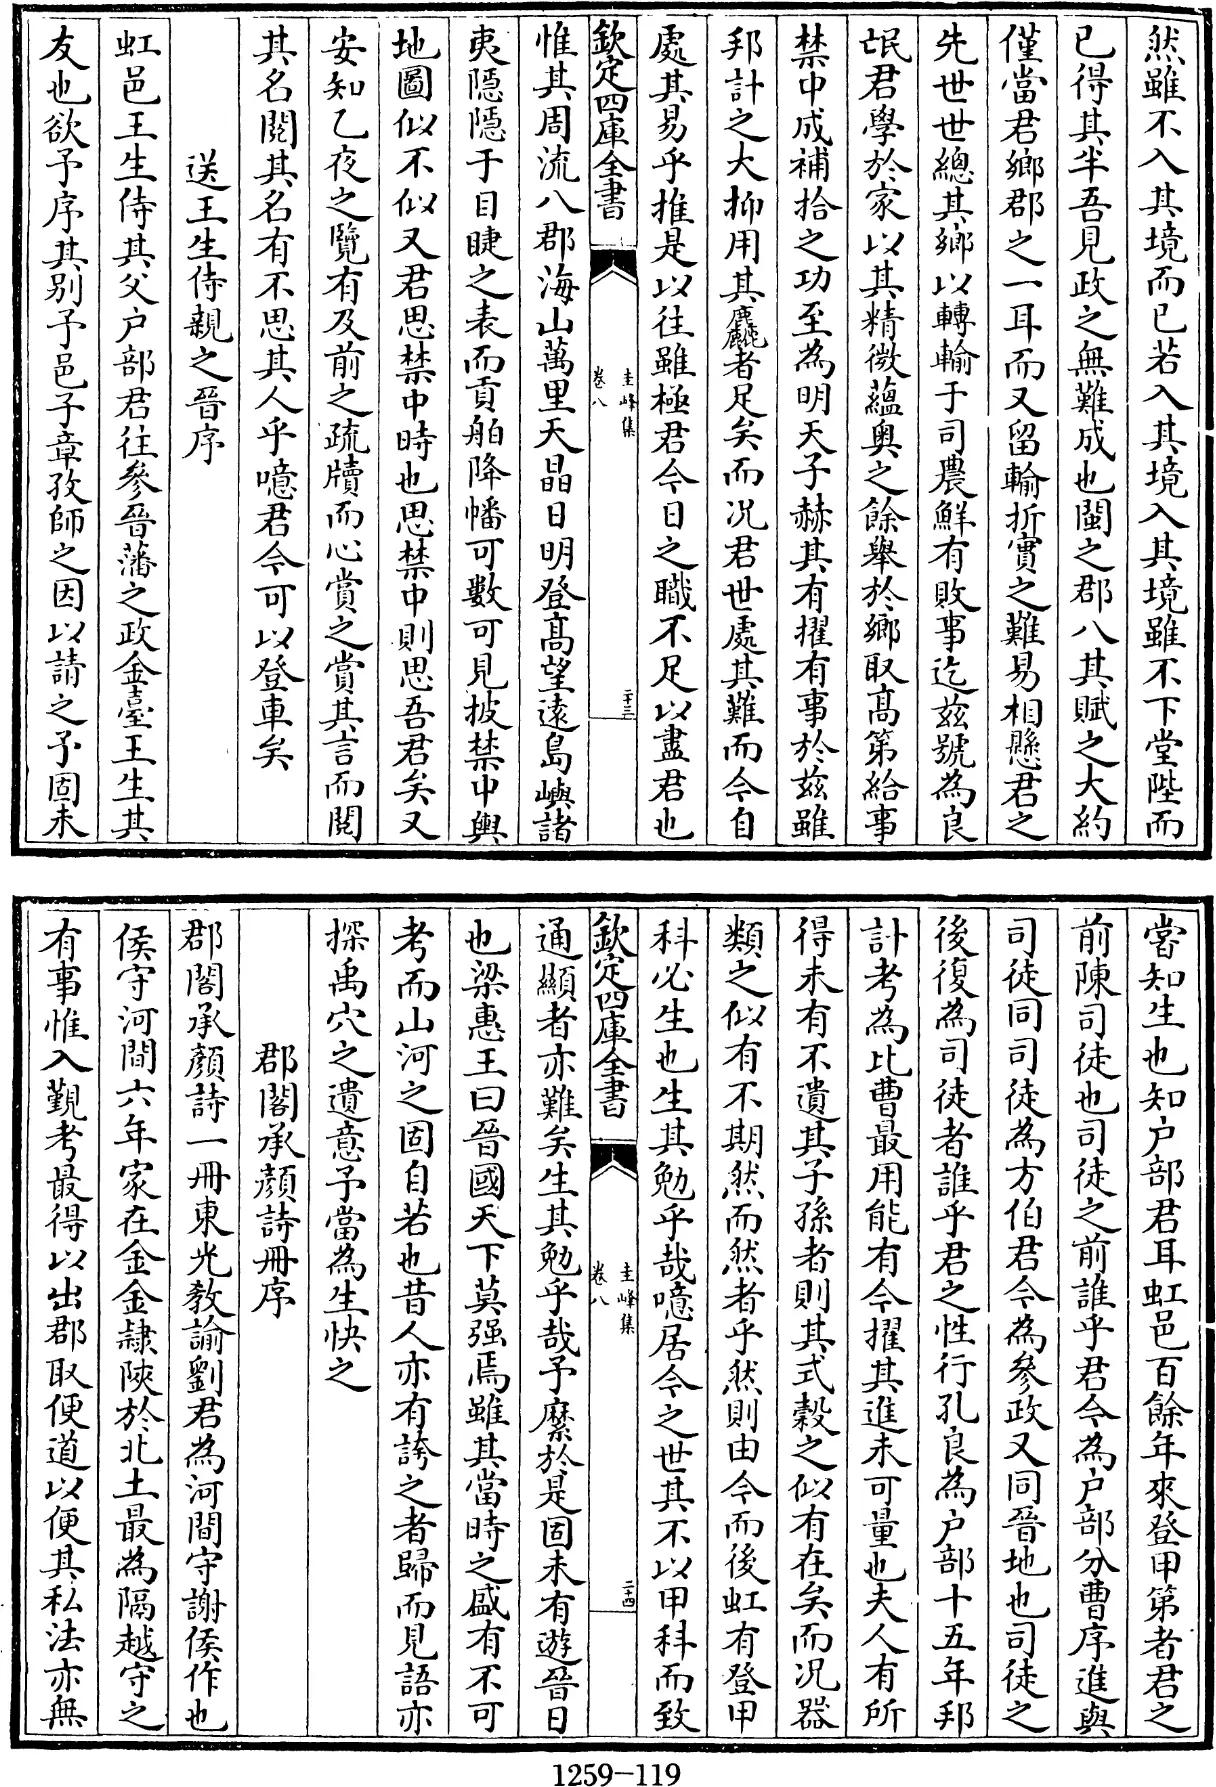 然雖不入其境而已若入其境入其境雖不下堂陛而
已得其半吾見政之無難成也閩之郡八其賦之大約
僅當君鄉郡之一耳而又留輸折實之難易相懸君之
先世世總其鄉以轉輸于司農鮮有敗事迄茲號為良
氓君學於家以其精微蘊奧之餘舉於鄉取高第給事
禁中成補拾之功至為明天子赫其有擢有事於茲雖
邦計之大抑用其麤者足矣而况君世處其難而今自
處其易乎推是以往雖極君今日之職不足以盡君也
欽定四庫全書
圭峰集
卷八
二十三
惟其周流八郡海山萬里天晶日明登高望遠島嶼諸
夷隱隱于目睫之表而貢舶降幡可數可見披禁中輿
地圖似不似又君思禁中時也思禁中則思吾君矣又
安知乙夜之覽有及前之疏牘而心賞之賞其言而閱
其名閱其名有不思其人乎噫君今可以登車矣
送王生侍親之晉序
虹邑王生侍其父户部君往參晉藩之政金臺王生其
友也欲予序其别予邑子章孜師之因以請之予固未
嘗知生也知户部君耳虹邑百餘年來登甲第者君之
前陳司徒也司徒之前誰乎君今為户部分曹序進與
司徒同司徒為方伯君今為參政又同晉地也司徒之
後復為司徒者誰乎君之性行孔良為户部十五年邦
計考為比曹最用能有今擢其進未可量也夫人有所
得未有不遺其子孫者則其式榖之似有在矣而况器
類之似有不期然而然者乎然則由今而後虹有登甲
科必生也生其勉乎哉噫居今之世其不以甲科而致
欽定四庫全書
圭峰集
卷八
二十四
通顯者亦難矣生其勉乎哉予縻於是固未有遊晉日
也梁惠王曰晉國天下莫强焉雖其當時之盛有不可
考而山河之固自若也昔人亦有誇之者歸而見語亦
探禹穴之遺意予當為生快之
郡閣承顏詩冊序
郡閣承顏詩一冊東光教諭劉君為河間守謝侯作也
侯守河間六年家在金金隸陜於北土最為隔越守之
有事惟入覲考最得以出郡取便道以便其私法亦無
1259—119